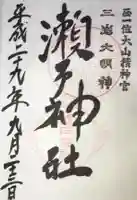 正一位大山積神宮
三嶋大明神
瀬戸神社
平成二十九年九月二十三日